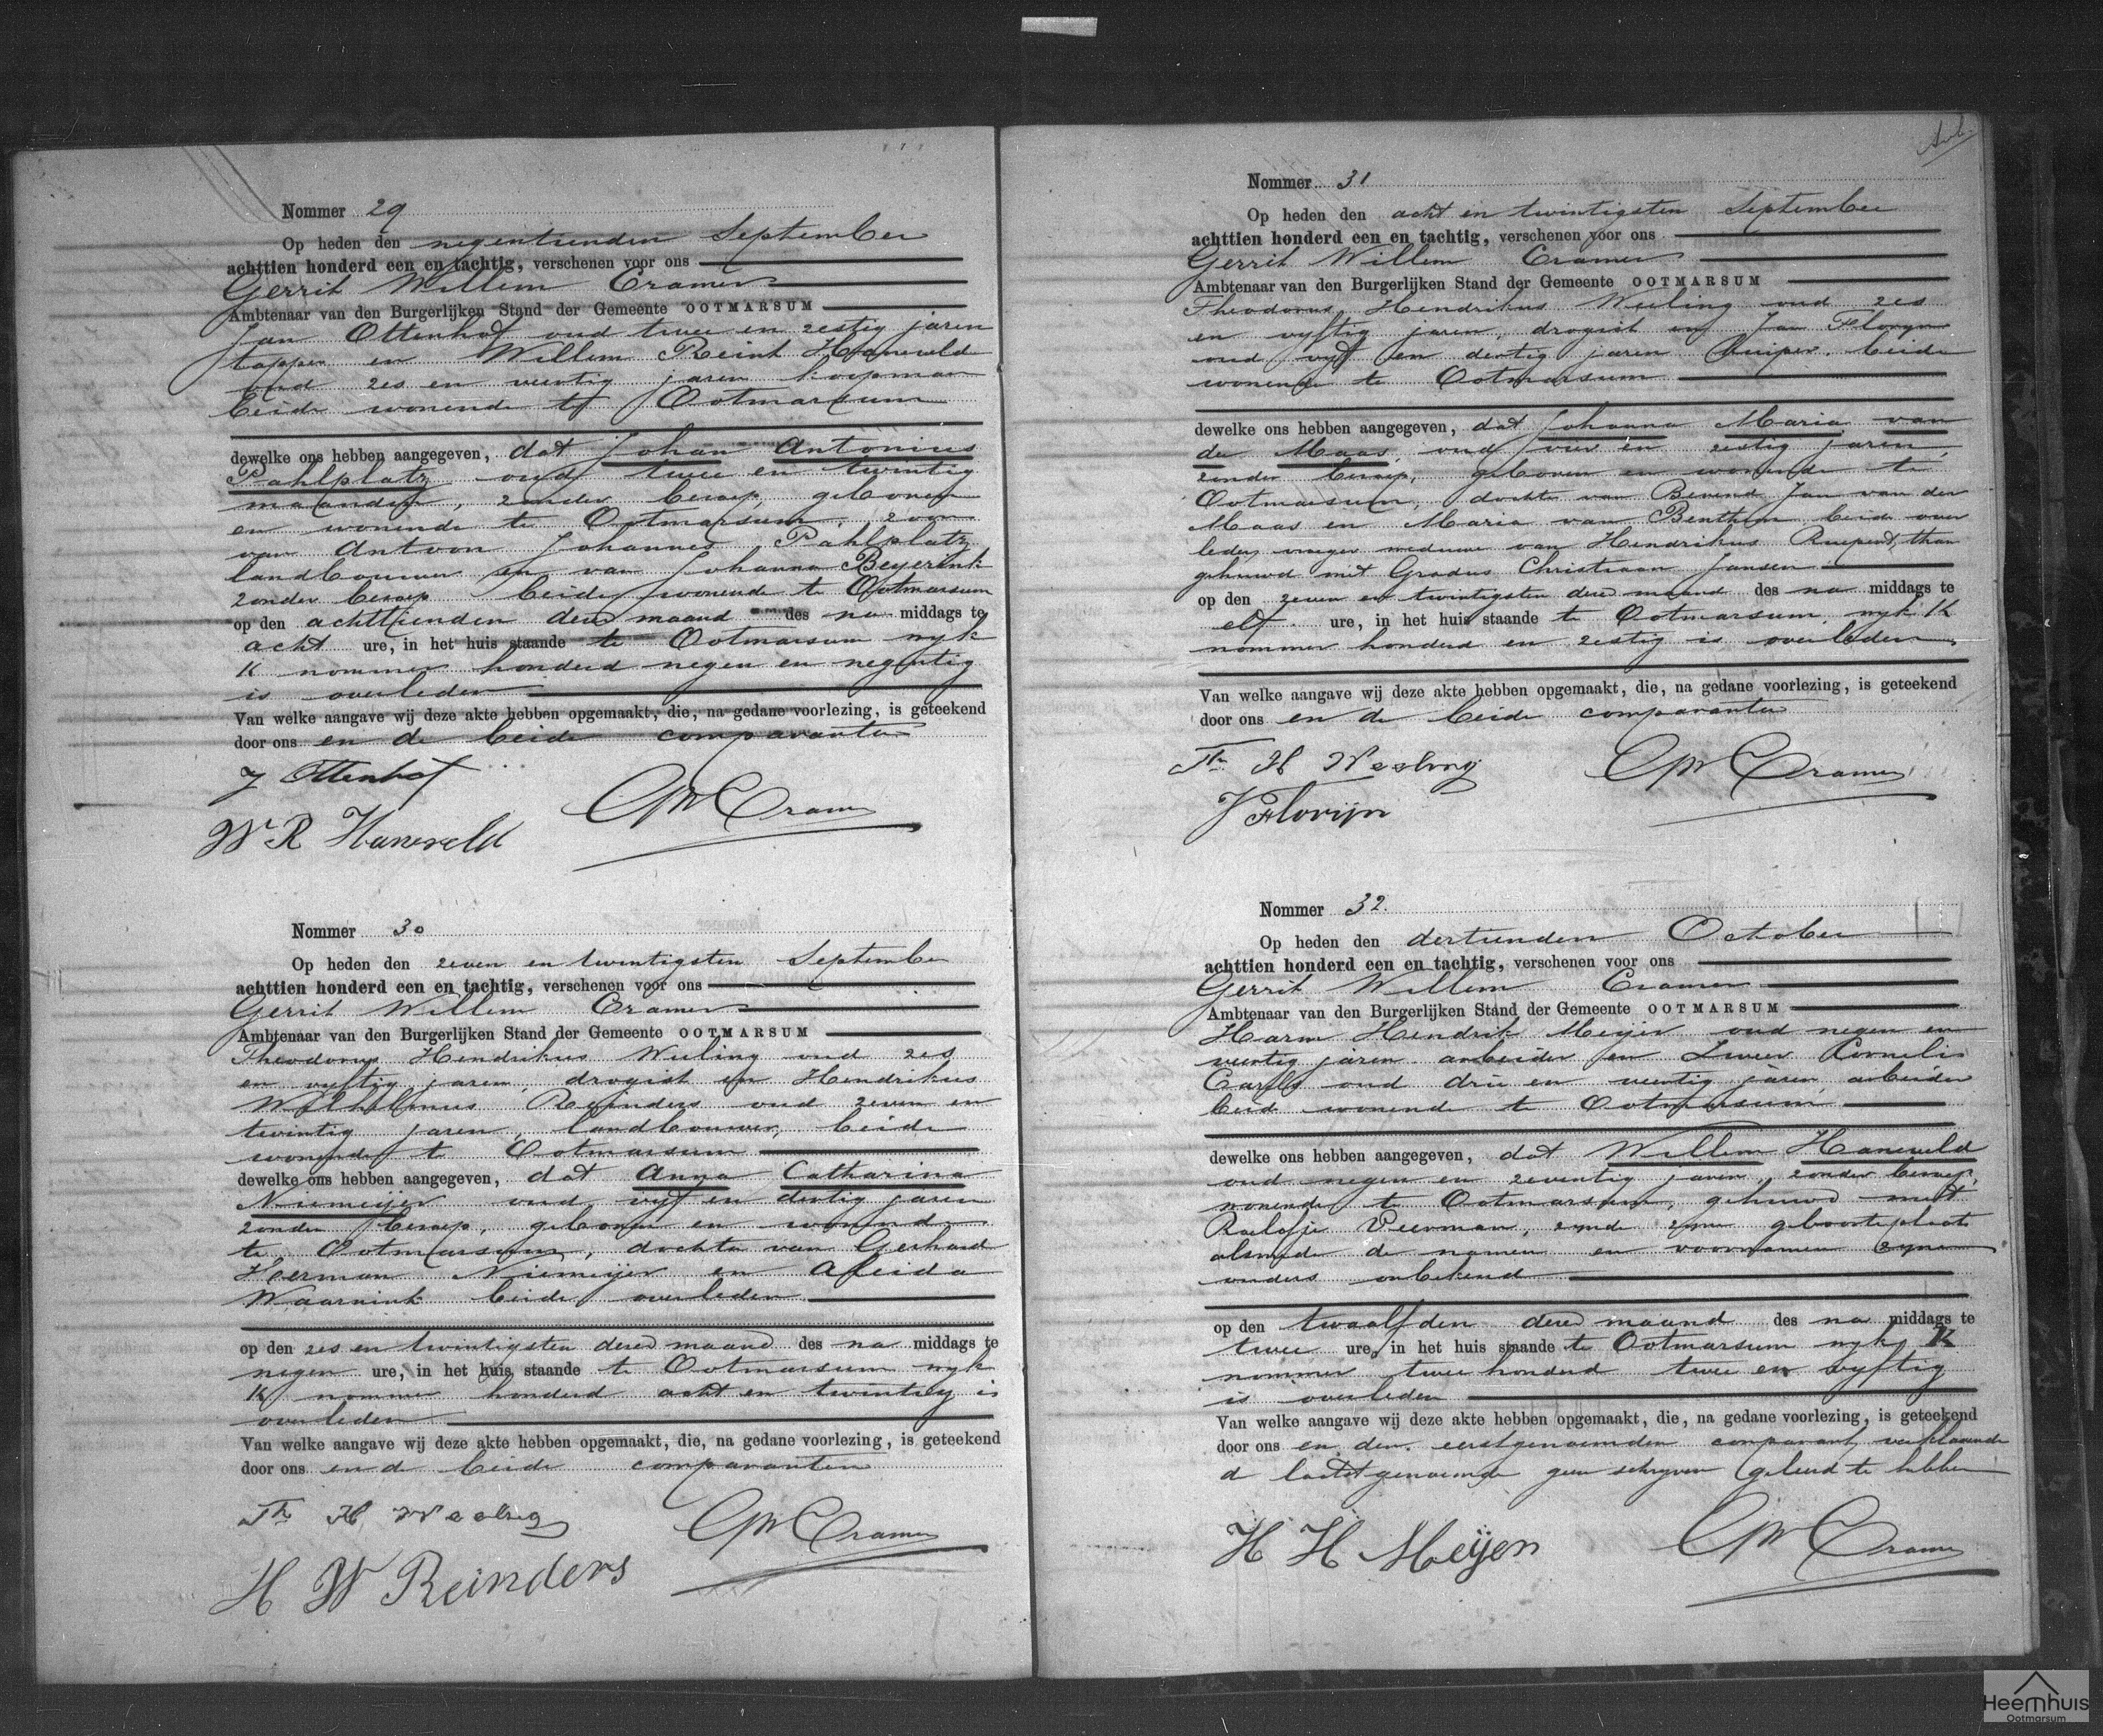 Nommer 29
Op heden den negentienden September
achttien honderd een en tachtig, verschenen voor ons
Gerrit Willem Cramer
Ambtenaar van den Burgerlijken Stand der Gemeente OOTMARSUM
Jan Ottenhof oud twee en zestig jaren
tapper en Willem Reint Haneveld
oud zes en veertig jaren koopman
beide wonende te Ootmarsum
dewelke ons hebben aangegeven, dat Johan Antonius
Pahlplatz oud twee en twintig
maanden, zonder beroep, geboren
en wonende te Ootmarsum, zoon
van Antoon Johannes Pahlplatz
landbouwer en van Johanna Beyerink
zonder beroep beide wonende te Ootmarsum
op den achttienden dezer maand des na middags te
acht ure, in het huis staande te Ootmarsum wyk
K nommer honderd negen en negentig
is overleden
Van welke aangave wij deze akte hebben opgemaakt, die, na gedane voorlezing, is geteekend
door ons en de beide comparanten
J Ottenhof
GW Cramer
W R Haneveld
Nommer 30
Op heden den zeven en twintigsten September
achttien honderd een en tachtig, verschenen voor ons
Gerrit Willem Cramer
Ambtenaar van den Burgerlijken Stand der Gemeente OOTMARSUM
Theodorus Hendrikus Weeling oud zes
en vyftig jaren, drogist en Hendrikus
Wilhelmus Reinders oud zeven en
twintig jaren, landbouwer, beide
wonende te Ootmarsum
dewelke ons hebben aangegeven, dat Anna Catharina
Niemeijer oud vyf en dertig jaren
zonder beroep, geboren en wonende
te Ootmarsum, dochter van Gerhard
Heerman Niemeijer en Aleida
Waarnink beide overleden
op den zes en twintigsten dezer maand des na middags te
negen ure, in het huis staande te Ootmarsum wyk
K nommer honderd acht en twintig is
overleden
Van welke aangave wij deze akte hebben opgemaakt, die, na gedane voorlezing, is geteekend
door ons en de beide comparanten
Th H Weeling
GW Cramer
H W Reinders
Nommer 31
Op heden den acht en twintigsten September
achttien honderd een en tachtig, verschenen voor ons
Gerrit Willem Cramer
Ambtenaar van den Burgerlijken Stand der Gemeente OOTMARSUM
Theodorus Hendrikus Weeling oud zes
en vyftig jaren, drogist en Jan Floryn
oud vyf en dertig jaren Kuiper, beide
wonende te Ootmarsum
dewelke ons hebben aangegeven, dat Johanna Maria van
der Maas, oud vier en zestig jaren,
zonder beroep, geboren en wonende te
Ootmarsum, dochter van Berend Jan van der
Maas en Maria van Benthem beide over
leden, vroeger weduwe van Hendrikus thans
gehuwd met Gradus Christiaan Jansen
op den zeven en twintigsten dezer maand des na middags te
elf ure, in het huis staande te Ootmarsum, wyk K
nommer honderd en zestig is overleden
Van welke aangave wij deze akte hebben opgemaakt, die, na gedane voorlezing, is geteekend
door ons en de beide comparanten
Th H Weeling
GW Cramer
J Florijn
Nommer 32.
Op heden den dertienden October
achttien honderd een en tachtig, verschenen voor ons
Gerrit Willem Cramer
Ambtenaar van den Burgerlijken Stand der Gemeente OOTMARSUM
Harm Hendrik Meijer oud negen en
veertig jaren arbeider en Kornelis
Carels oud drie en veertig jaren arbeider
beide wonende te Ootmarsum
dewelke ons hebben aangegeven, dat Willem Haneveld
oud negen en zeventig jaren, zonder beroep,
wonende te Ootmarsum, gehuwd met
Roelofje Veerman, zynde zyne geboorteplaats
alsmede de namen en voornamen zyner
ouders onbekend
op den twaalfden dezer maand des na middags te
twee ure, in het huis staande te Ootmarsum wyk K
nommer twee honderd twee en vyftig
is overleden
Van welke aangave wij deze akte hebben opgemaakt, die, na gedane voorlezing, is geteekend
door ons en den eerstgenoemden comparant, verklarende
de laatstgenoemde geen schryven geleerd te hebben
H H Meijer
GW Cramer
Heemhuis
Ootmarsum